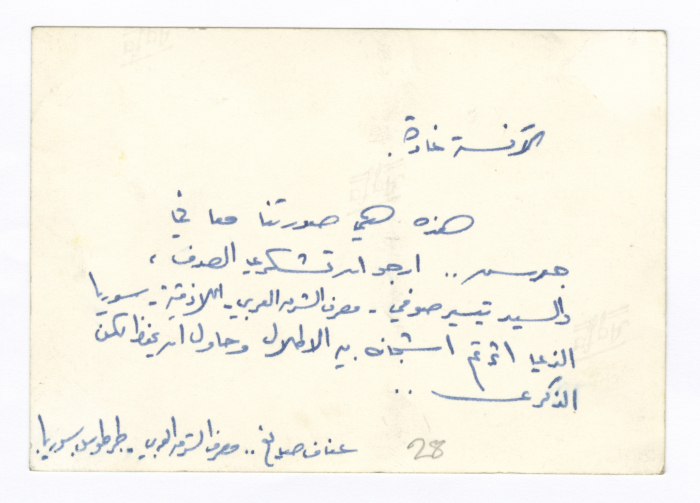 الآنسة غادة .
هذه هي صورتنا معا في
جرسـ .. ارجو ان تشكري الصدف ،
والسيد تيسير صوفي - مصرف الشرق العربي - اللاذقية - سوريا
به الاطلال وحاول ان يحفظ لكن
الذكرى ..
عفاف صايغ .. مصرف الشرق العربي - طرطوس سوريا .
28